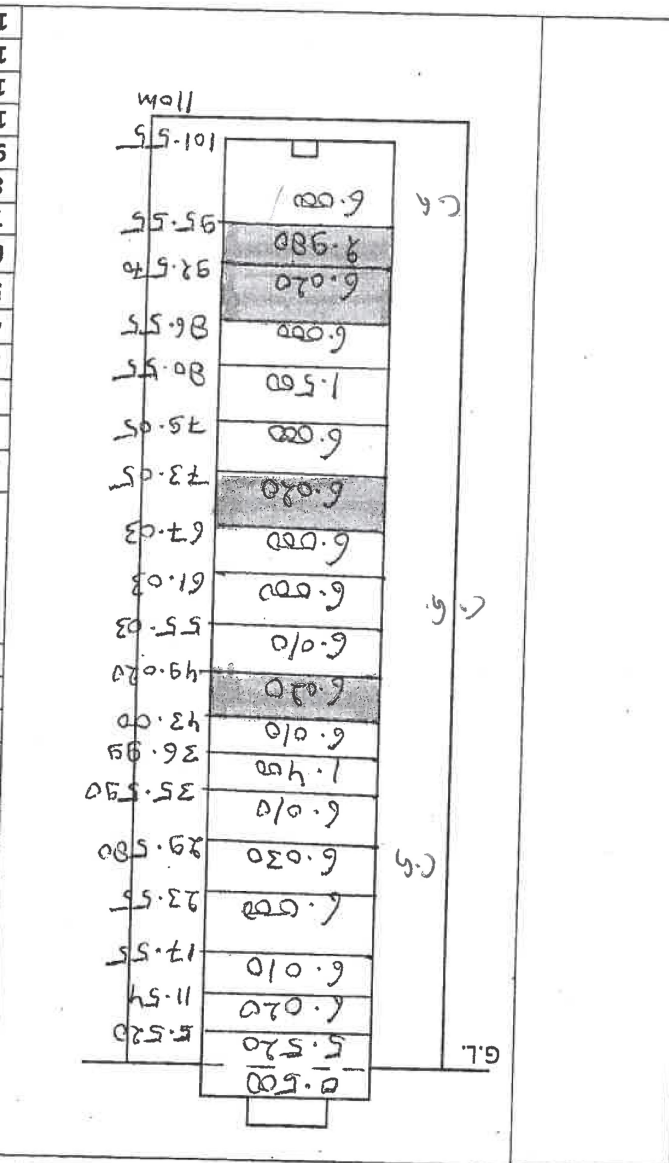 0.500
G.L.
5.520 5.520
6.020 11.54
6.010 17.55
6.000 23.55
C.G 6.030 29.580
6.010 35.590
1.400 36.99
6.010 43.00
6.020 49.020
6.010 55.03
C.G. 6.000 61.03
6.000 67.03
6.020 73.05
6.000 79.05
1.500 80.55
6.000 86.55
6.020 92.570
2.980 95.55
C.G 6.000
101.55
110m